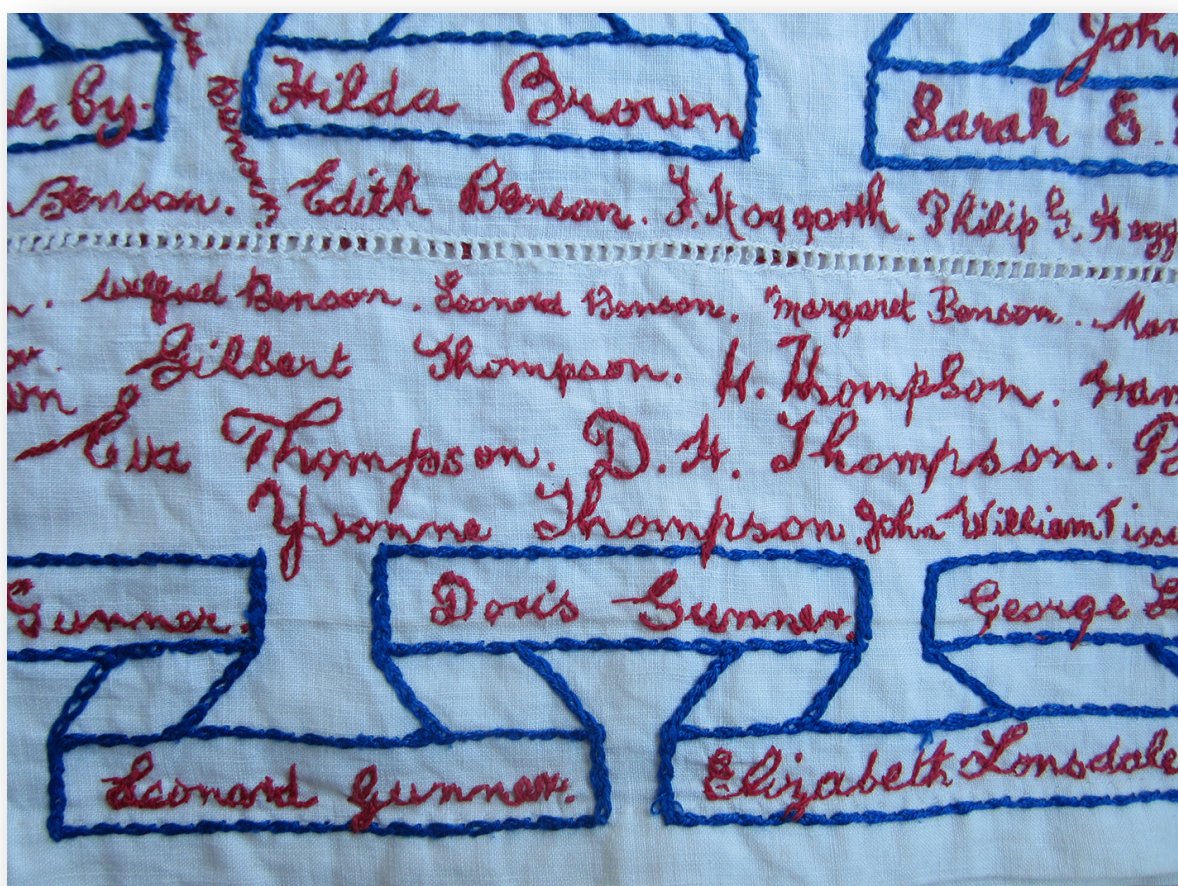 by. Hilda Brown Sarah E.
John
Benson. Edith Benson. J. Hoggarth. Philip G. Hogg
Wilfred Benson. Leonard Benson. Margaret Benson.
Gilbert Thompson. H. Thompson.
Eva Thompson. D. H. Thompson.
Yvonne Thompson. John William Tiss
Gunner. Doris Gunner. George L
Leonard Gunner. Elizabeth Lonsdale